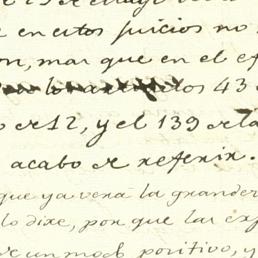 en estos juicios no
on, mas que en el ef
los 43
12, y el 139 de la
acabo de referir.
que ya verá la grander
lo dixe, por que las exp
un modo positivo, y